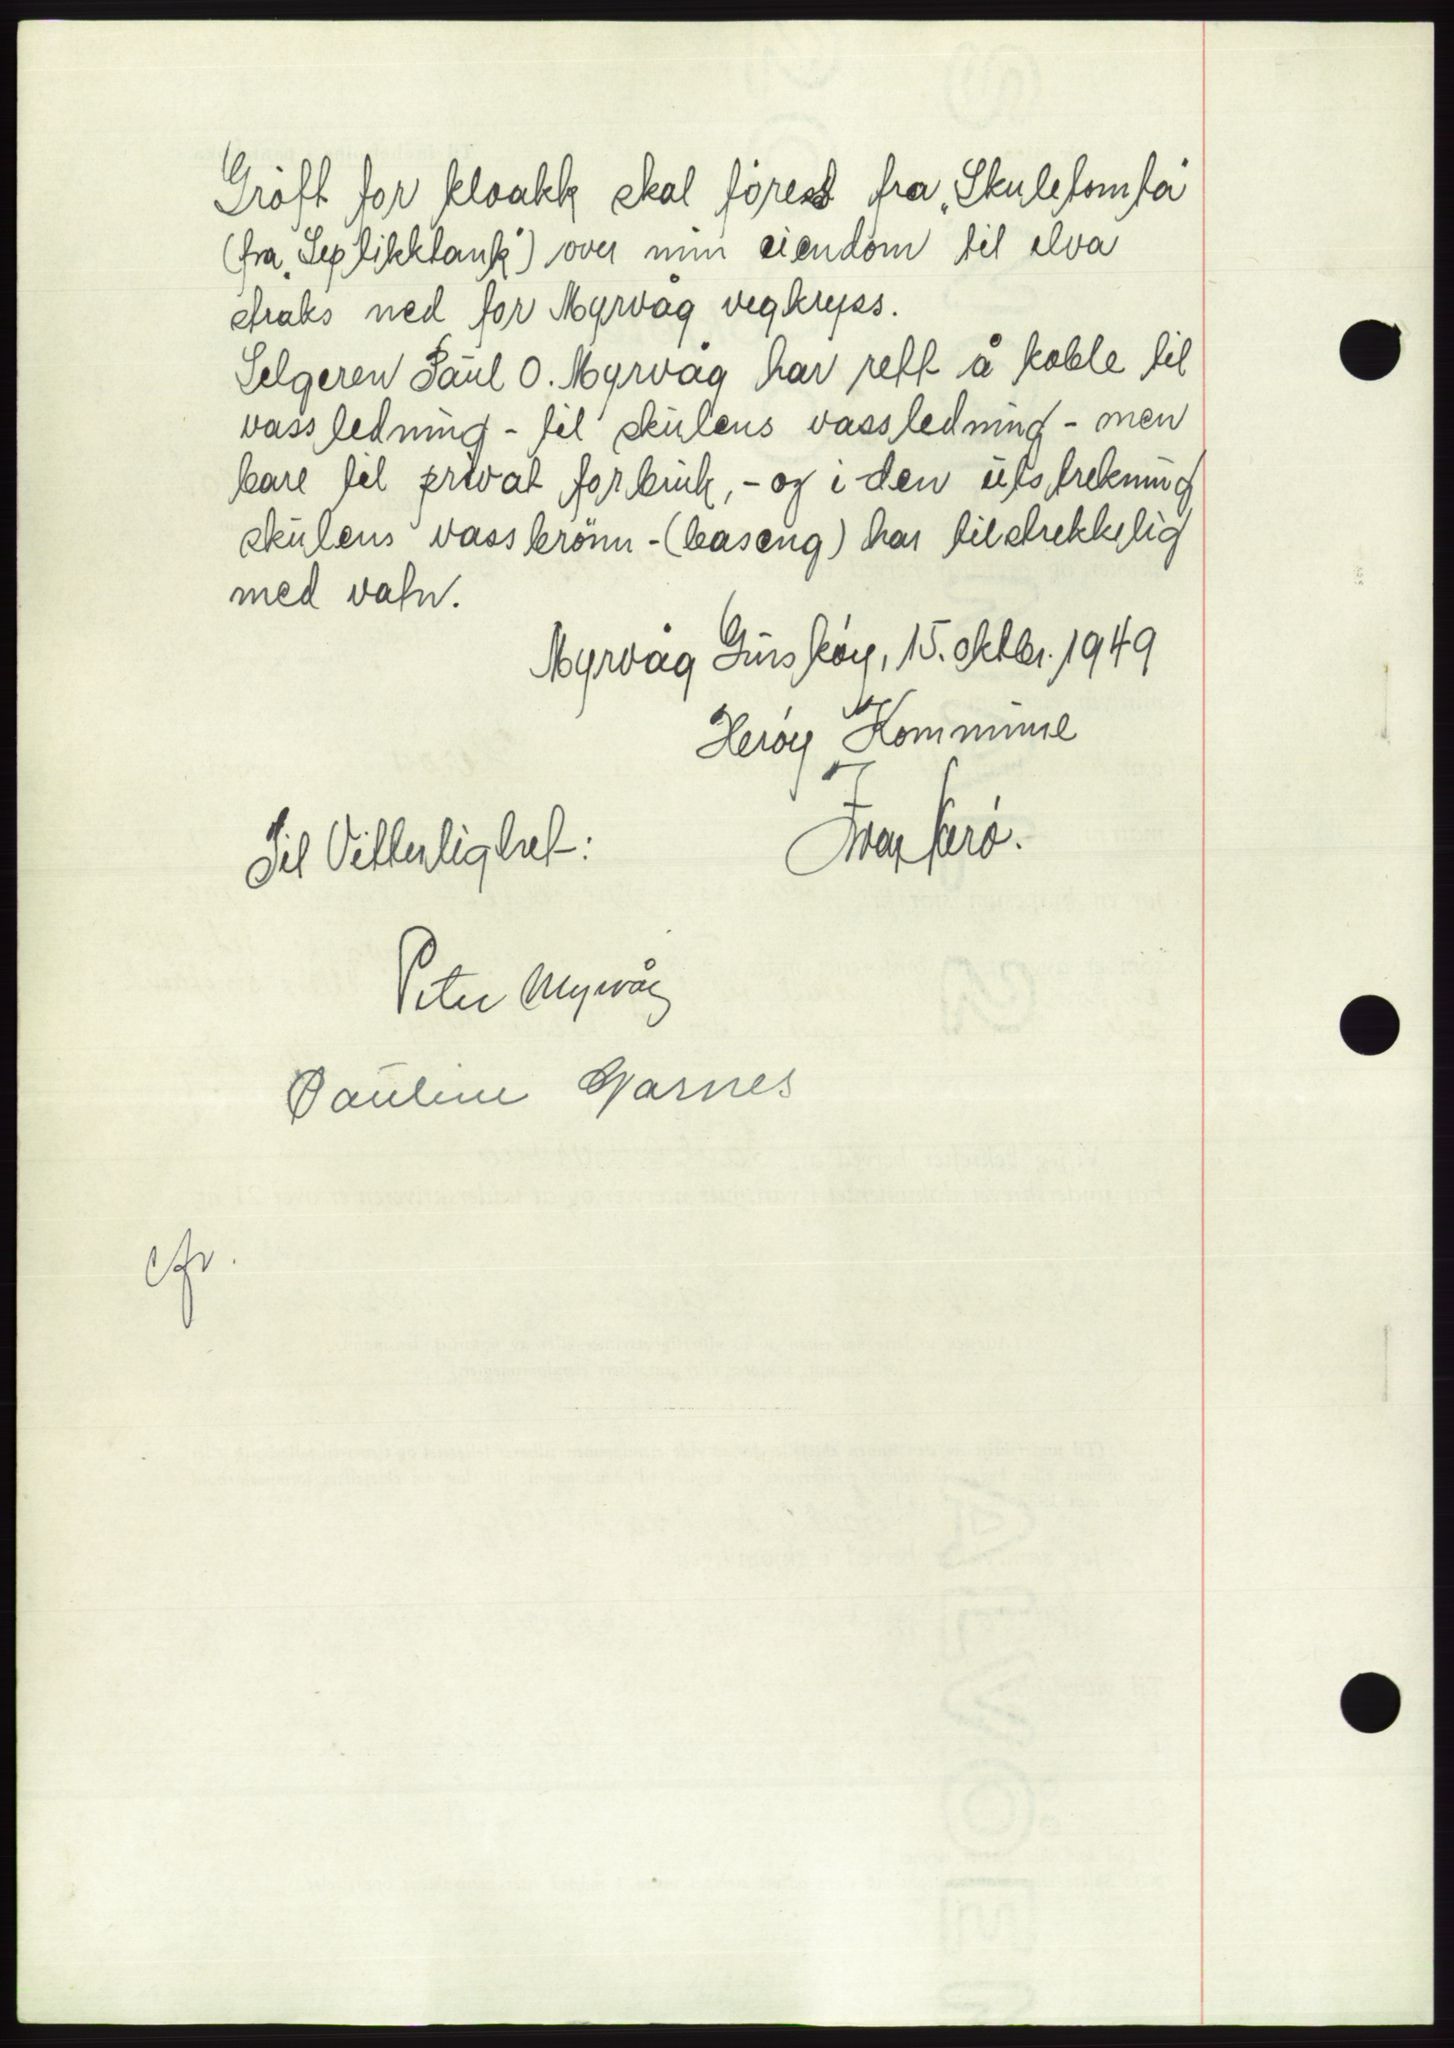 Grøft for kloakk skal føres fra „Skuletomta
(fra „Septikktank“) over min eiendom til elva
straks ned for Myrvåg vegkryss.
Selgeren Paul O. Myrvåg har rett å koble til
vassledning - til skulens vassledning - men
bare til privat forbruk, - og i den utstrekning
skulens vassbrønn - (baseng) har tilstrekkelig
med vatn.
Myrvåg Gurskøy, 15. oktbr. 1949
Herøy Kommune
Til Vitterlighet:
Peter Myrvåg
Pauline Garnes